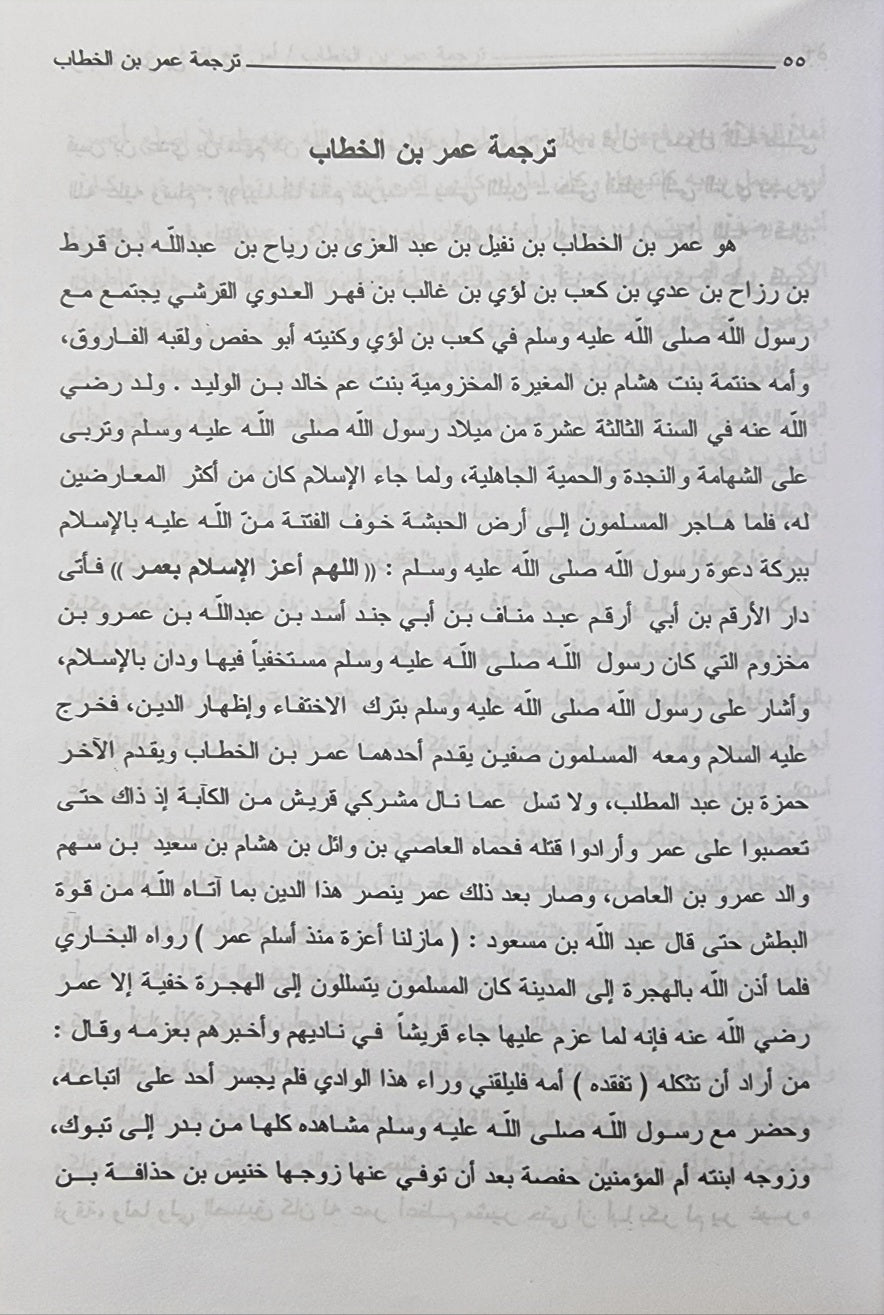 ٥٥ ترجمة عمر بن الخطاب
ترجمة عمر بن الخطاب
هو عمر بن الخطاب بن نفيل بن عبد العزى بن رياح بن عبدالله بن قرط
بن رزاح بن عدي بن كعب بن لؤي بن غالب بن فهر العدوي القرشي يجتمع مع
رسول الله صلى الله عليه وسلم في كعب بن لؤي وكنيته أبو حفص ولقبه الفاروق،
وأمه حنتمة بنت هشام بن المغيرة المخزومية بنت عم خالد بن الوليد . ولد رضي
الله عنه في السنة الثالثة عشرة من ميلاد رسول الله صلى الله عليه وسلم وتربى
على الشهامة والنجدة والحمية الجاهلية، ولما جاء الإسلام كان من أكثر المعارضين
له، فلما هاجر المسلمون إلى أرض الحبشة خوف الفتنة منّ الله عليه بالإسلام
ببركة دعوة رسول الله صلى الله عليه وسلم : (( اللهم أعز الإسلام بعمر )) فأتى
دار الأرقم بن أبي أرقم عبد مناف بن أبي جند أسد بن عبدالله بن عمرو بن
مخزوم التي كان رسول الله صلى الله عليه وسلم مستخفياً فيها ودان بالإسلام،
وأشار على رسول الله صلى الله عليه وسلم بترك الاختفاء وإظهار الدين، فخرج
عليه السلام ومعه المسلمون صفين يقدم أحدهما عمر بن الخطاب ويقدم الآخر
حمزة بن عبد المطلب، ولا تسل عما نال مشركي قريش من الكآبة إذ ذاك حتى
تعصبوا على عمر وأرادوا قتله فحماه العاصي بن وائل بن هشام بن سعيد بن سهم
والد عمرو بن العاص، وصار بعد ذلك عمر ينصر هذا الدين بما آتاه الله من قوة
البطش حتى قال عبد الله بن مسعود : ( مازلنا أعزة منذ أسلم عمر ) رواه البخاري
فلما أذن الله بالهجرة إلى المدينة كان المسلمون يتسللون إلى الهجرة خفية إلا عمر
رضي الله عنه فإنه لما عزم عليها جاء قريشاً في ناديهم وأخبرهم بعزمه وقال :
من أراد أن تثكله ( تفقده ) أمه فليلقني وراء هذا الوادي فلم يجسر أحد على اتباعه،
وحضر مع رسول الله صلى الله عليه وسلم مشاهده كلها من بدر إلى تبوك،
وزوجه ابنته أم المؤمنين حفصة بعد أن توفي عنها زوجها خنيس بن حذافة بن